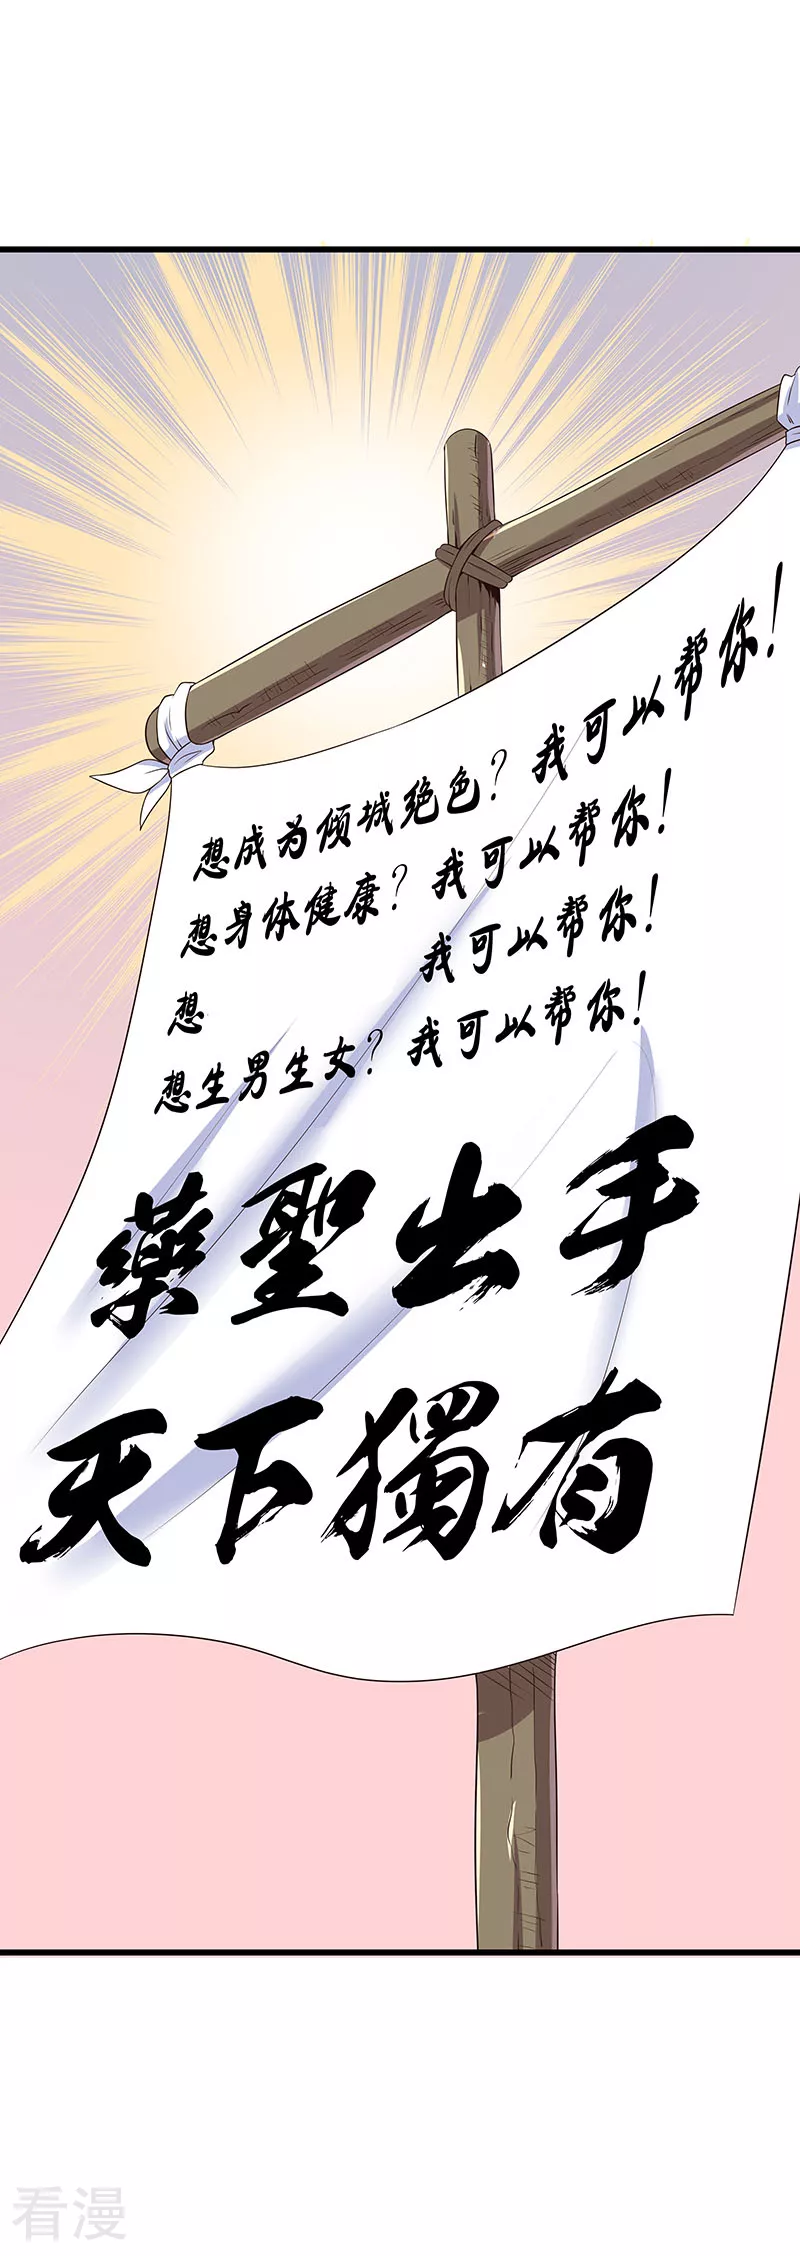 想成为倾城绝色？我可以帮你！
想身体健康？我可以帮你！
想 我可以帮你！
想生男生女？我可以帮你！
藥聖出手
天下獨有
看漫